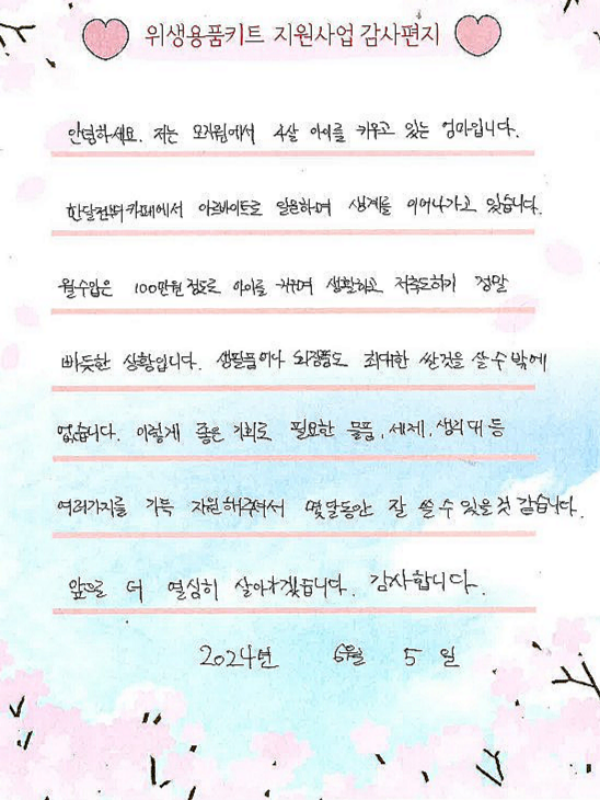 위생용품키트 지원사업 감사편지
안녕하세요. 저는 모자원에서 4살 아이를 키우고 있는 엄마입니다.
한달전부터 카페에서 아르바이트로 일을하며 생계를 이어나가고 있습니다.
월수입은 100만원 정도로 아이를 키우며 생활하고 저축도하기 정말
빠듯한 상황입니다. 생필품이나 화장품도 최대한 싼것을 살 수 밖에
없습니다. 이렇게 좋은 기회로 필요한 물품, 세제, 생리대 등
여러가지를 가득 지원해주셔서 몇달동안 잘 쓸 수 있을것 같습니다.
앞으로 더 열심히 살아가겠습니다. 감사합니다.
2024년 6월 5일